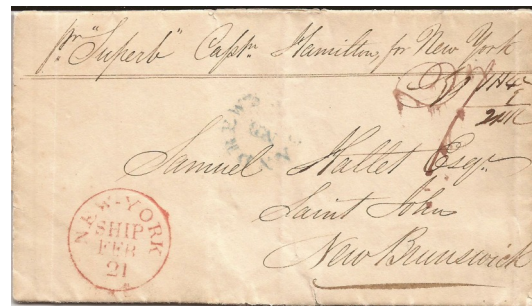 pr "Superb" Captn. Hamilton, for New York
Samuel Hallet Esqr.
Saint John
New Brunswick
NEW-YORK
SHIP
FEB
21